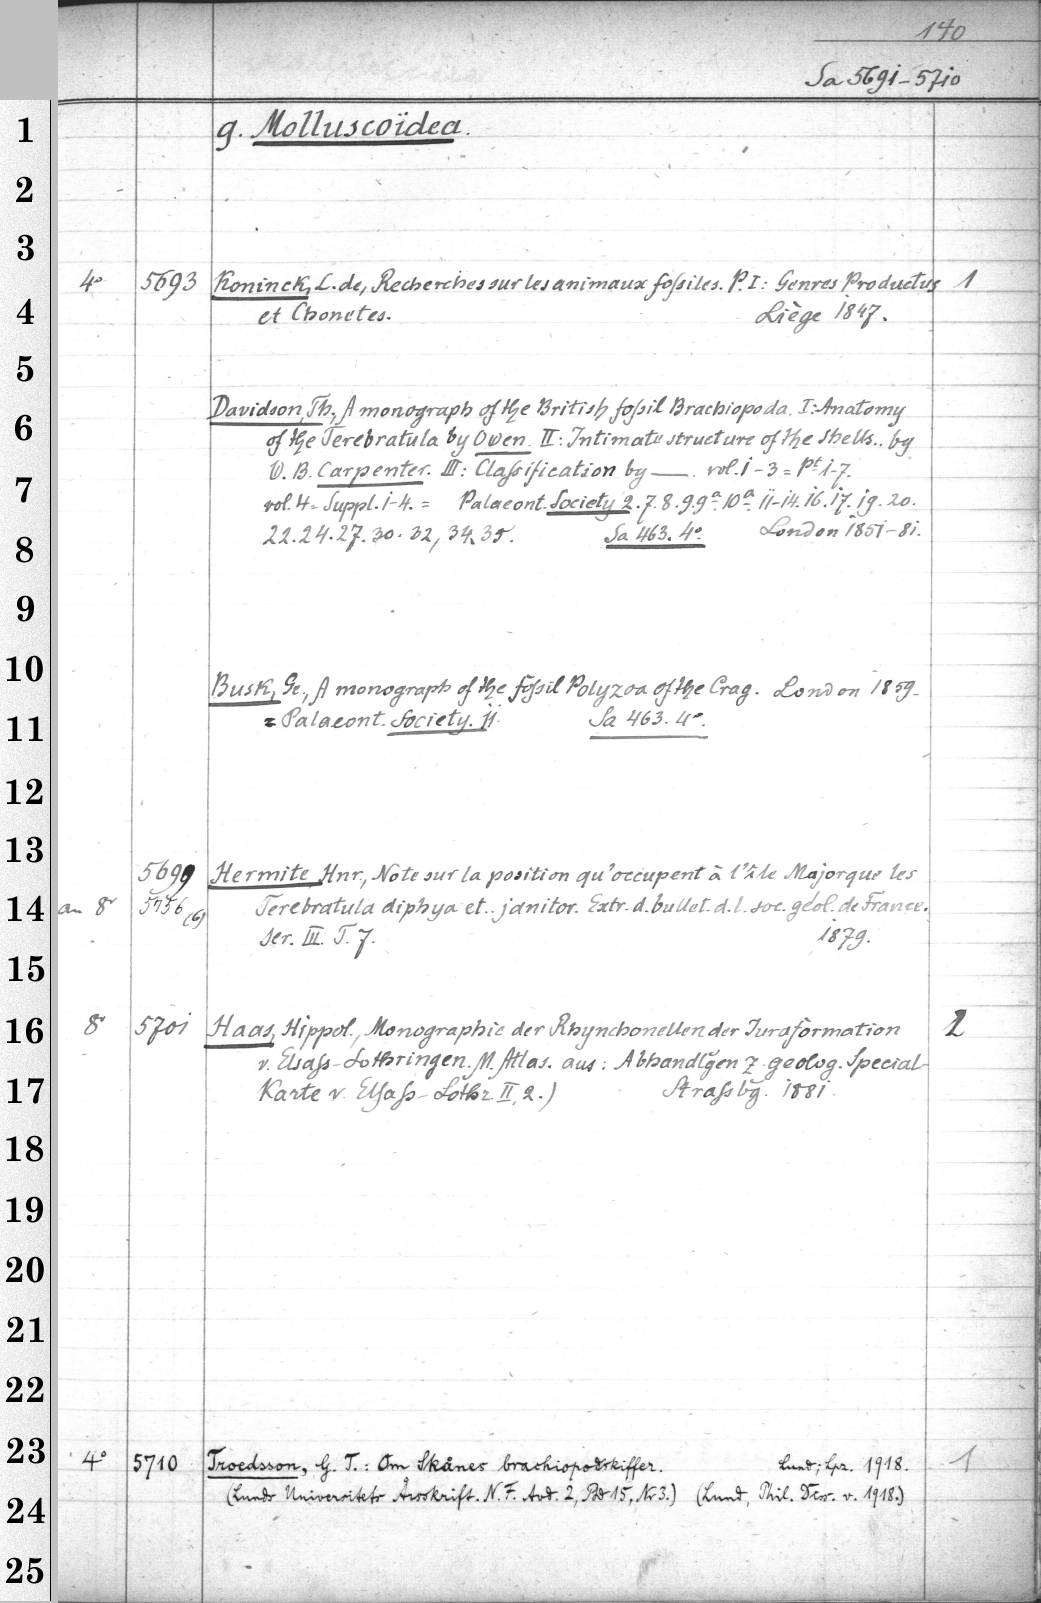 140
Sa 5691-5710
g. Molluscoïdea.
4° 5693 Koninck, L. de, Recherches sur les animaux fossiles. P. I: Genres Productus 1
et Chonetes. Liège 1847.
Davidson, Th., A monograph of the British fossil Brachiopoda. I: Anatomy
of the Terebratula by Owen. II: Intimate structure of the shells.. by
W. B. Carpenter. III: Classification by —. vol. 1-3 = pt 1-7.
vol. 4 = Suppl. 1-4. = Palaeont. Society 2. 7. 8. 9. 9a. 10a. 11-14. 16. 17. 19. 20.
22. 24. 27. 30. 32, 34. 35. Sa 463. 4°. London 1851-81.
Busk, Ge., A monograph of the fossil Polyzoa of the Crag. London 1859.
= Palaeont. Society. 11. Sa 463. 4°.
5699 Hermite, Hnr., Note sur la position qu'occupent à l'île Majorque les
an 8° 5756 (6) Terebratula diphya et.. janitor. Extr. d. bullet. d. l. soc. géol. de France.
Ser. III. T. 7. 1879.
8° 5701 Haas, Hippol., Monographie der Rhynchonellen der Juraformation 2
v. Elsass-Lothringen. M. Atlas. aus: Abhandlgen z. geolog. Special-
Karte v. Elsass-Lothr. II, 2.) Strassbg. 1881.
4° 5710 Troedsson, G. T.: Om Skånes brachiopodskiffer. Lund; Lpz. 1918. 1
(Lunds Universitets Årsskrift. N. F. Avd. 2, Bd 15, Nr 3.) (Lund, Phil. Diss. v. 1918.)
1
2
3
4
5
6
7
8
9
10
11
12
13
14
15
16
17
18
19
20
21
22
23
24
25